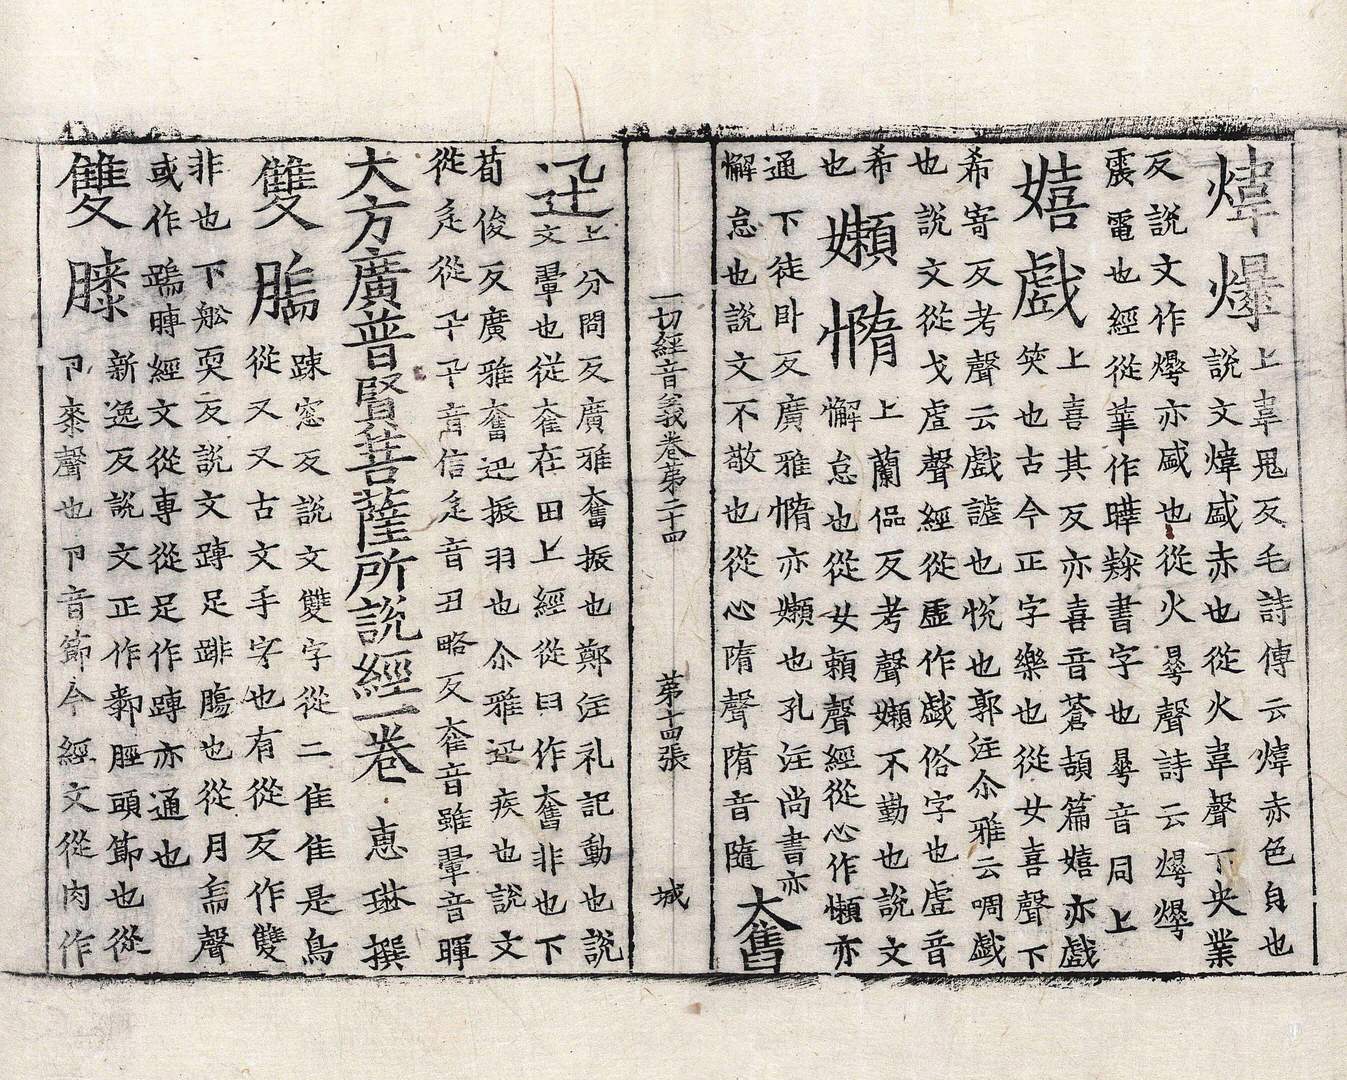 煒爗
上韋鬼反毛詩傳云煒赤色皃也
說文煒盛赤也從火韋聲下央業
反說文作爗亦盛也從火𣊬聲詩云爗爗
震電也經從華作曄隸書字也𣊬音同上
嬉戲
上喜其反亦喜音蒼頡篇嬉亦戲
笑也古今正字樂也從女喜聲下
希寄反考聲云戲謔也悅也郭注尒雅云啁戲
也說文從戈䖒聲經從虛作戱俗字也䖒音
希
也
嬾憜
上蘭侃反考聲嬾不勤也說文
懈怠也從女賴聲經從心作懶亦
通下徒卧反廣雅憜亦嬾也孔注尚書亦
懈怠也說文不敬也從心隋聲隋音隨
大奮
一切經音義卷第二十四 第十四張 城
迅
上分問反廣雅奮振也鄭注礼記動也說
文翬也從奞在田上經從臼作奮非也下
荀俊反廣雅奮迅振羽也尒雅迅疾也說文
從辵從卂卂音信辵音丑略反奞音雖翬音暉
大方廣普賢菩薩所說經一卷 惠琳撰
雙腨
踈窓反說文雙字從二隹隹是鳥
從又又古文手字也有從攴作雙
非也下舩耎反說文䠧足腓腸也從月耑聲
或作腨經文從專從足作䠧亦通也
雙膝
新逸反說文正作厀脛頭節也從
卪桼聲也卪音節今經文從肉作